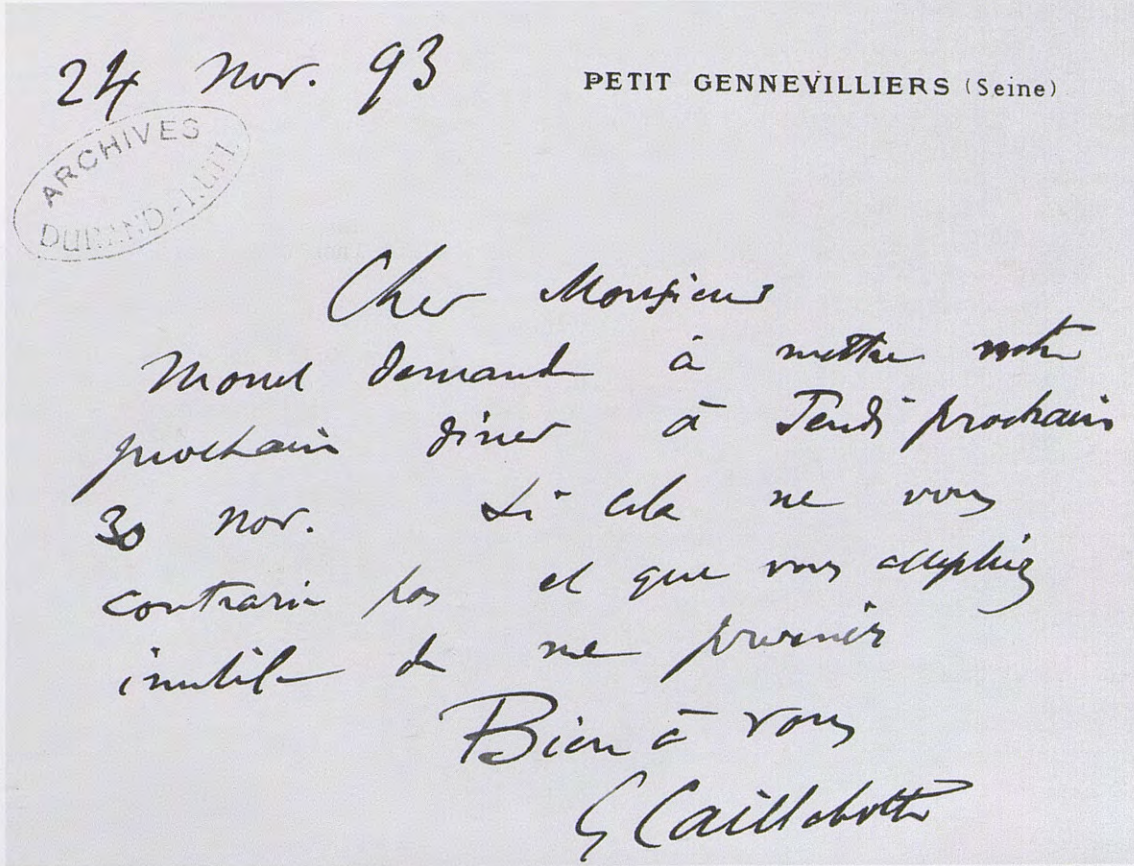 24 Nov. 93
PETIT GENNEVILLIERS (Seine)
ARCHIVES
DURAND-RUEL
Cher Monsieur
Monet demande à mettre notre
prochain diner à Jeudi prochain
30 Nov. Si cela ne vous
contrarie pas et que vous acceptiez
inutile de me prévenir
Bien à vous
G Caillebotte